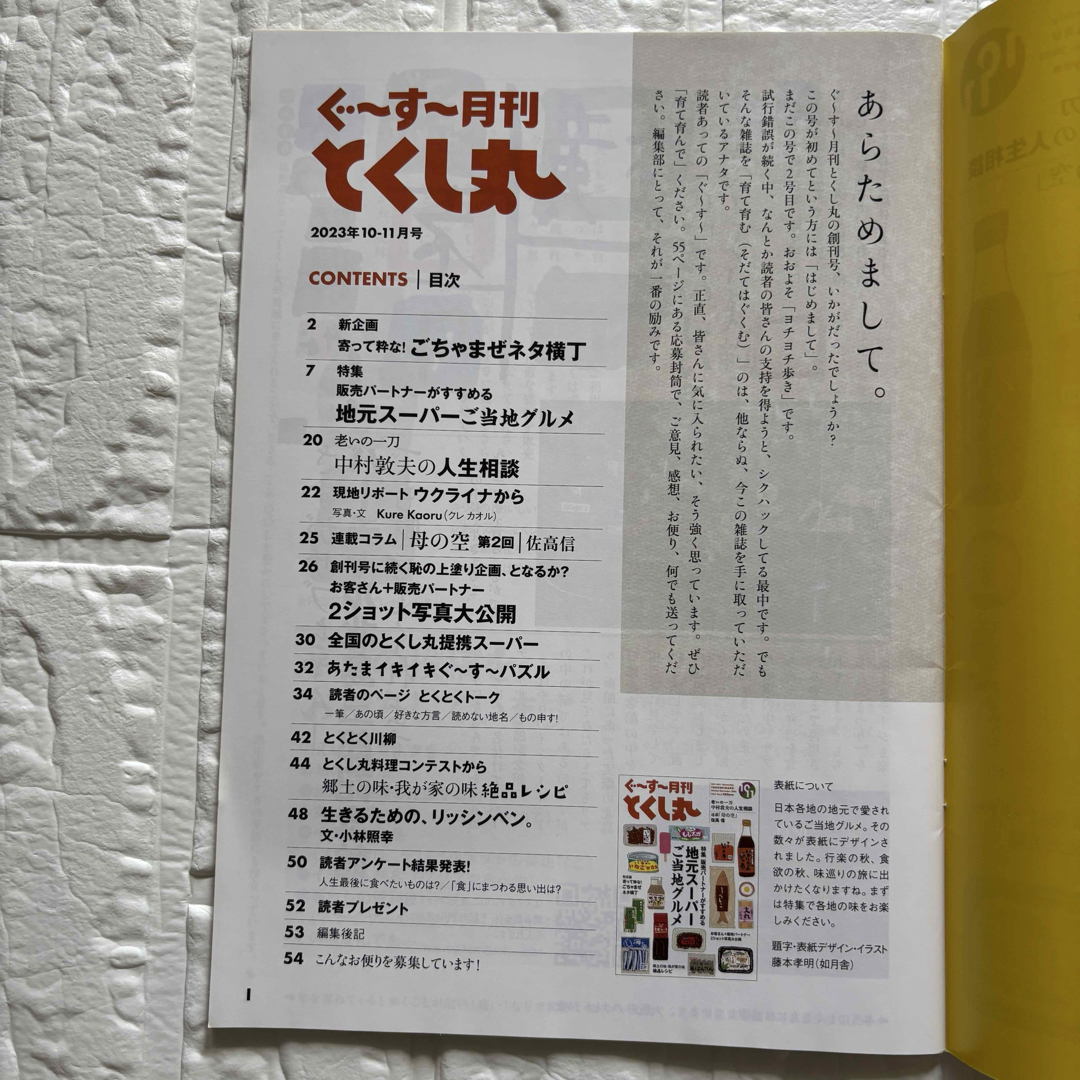 ぐ〜す〜月刊
とくし丸
2023年10-11月号
CONTENTS | 目次
2 新企画
寄って粋な! ごちゃまぜネタ横丁
7 特集
販売パートナーがすすめる
地元スーパーご当地グルメ
20 老いの一刀
中村敦夫の人生相談
22 現地リポート ウクライナから
写真・文 Kure Kaoru(クレ カオル)
25 連載コラム|母の空 第2回|佐高信
26 創刊号に続く恥の上塗り企画、となるか?
お客さん+販売パートナー
2ショット写真大公開
30 全国のとくし丸提携スーパー
32 あたまイキイキぐ〜す〜パズル
34 読者のページ とくとくトーク
一筆/あの頃/好きな方言/読めない地名/もの申す!
42 とくとく川柳
44 とくし丸料理コンテストから
郷土の味・我が家の味 絶品レシピ
48 生きるための、リッシンベン。
文・小林照幸
50 読者アンケート結果発表!
人生最後に食べたいものは?/「食」にまつわる思い出は?
52 読者プレゼント
53 編集後記
54 こんなお便りを募集しています!
1
あらためまして。
ぐ〜す〜月刊とくし丸の創刊号、いかがだったでしょうか?
この号が初めてという方には「はじめまして」。
まだこの号で2号目です。おおよそ「ヨチヨチ歩き」です。
試行錯誤が続く中、なんとか読者の皆さんの支持を得ようと、シクハックしてる最中です。でも
そんな雑誌を「育て育む(そだてはぐくむ)」のは、他ならぬ、今この雑誌を手に取っていただ
いているアナタです。
読者あっての「ぐ〜す〜」です。正直、皆さんに気に入られたい、そう強く思っています。ぜひ
「育て育んで」ください。55ページにある応募封筒で、ご意見、感想、お便り、何でも送ってくだ
さい。編集部にとって、それが一番の励みです。
ぐ〜す〜月刊
とくし丸
老いの一刀
中村敦夫の人生相談
「母の空」
佐高 信
特集 販売パートナーがすすめる
地元スーパー
ご当地グルメ
ごちゃまぜ
ネタ横丁
お客さん+販売パートナー
2ショット写真大公開
郷土の味・我が家の味
絶品レシピ
表紙について
日本各地の地元で愛され
ているご当地グルメ。その
数々が表紙にデザインさ
れました。行楽の秋、食
欲の秋、味巡りの旅に出
かけたくなりますね。まず
は特集で各地の味をお楽
しみください。
題字・表紙デザイン・イラスト
藤本孝明(如月舎)